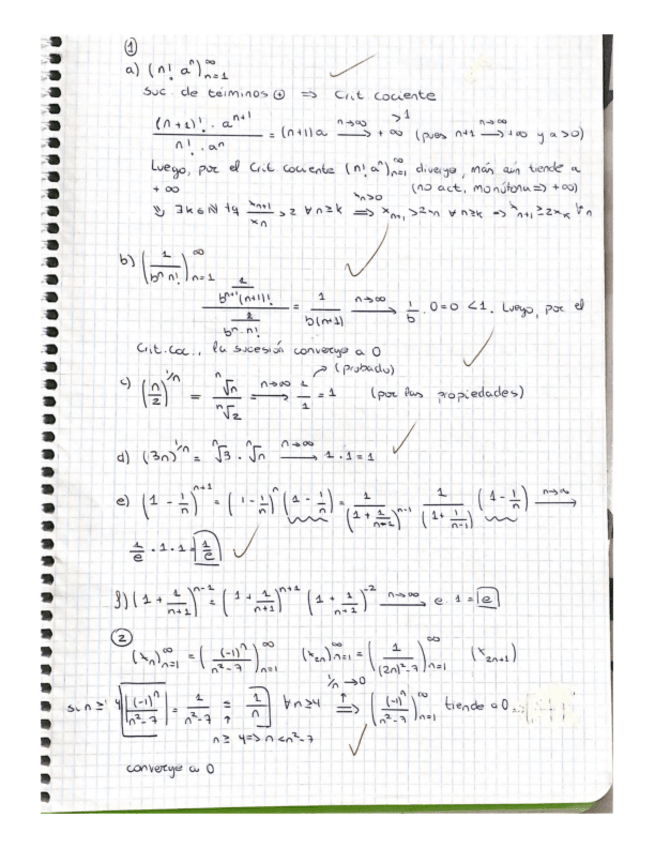 ①
a) (n! aⁿ)_{n=1}^∞
Suc. de términos ⊕ ⇒ Crit cociente
(n+1)! · aⁿ⁺¹ / n! · aⁿ = (n+1)a →(n→∞) +∞ >1 (pues n+1 →(n→∞) +∞ y a>0)
Luego, por el Crit. cociente (n! aⁿ)_{n=1}^∞ diverge, más aún tiende a
+∞ (no act, monótona ⇒ +∞)
∃k∈ℕ tq x_{n+1}/x_n > 2 ∀n≥k ⇒(x_n>0) x_{n+1} > 2x_n ∀n≥k ⇒ x_{n+1} ≥ 2x_k
b) (1/(bⁿ n!))_{n=1}^∞
(1/(bⁿ⁺¹(n+1)!)) / (1/(bⁿ·n!)) = 1/(b(n+1)) →(n→∞) 1/b · 0 = 0 < 1. Luego, por el
Crit. Coc., la sucesión converge a 0
c) (n/2)^{1/n} = ⁿ√n / ⁿ√2 →(n→∞) 1/1 = 1 (probado) (por las propiedades)
d) (3n)^{1/n} = ⁿ√3 · ⁿ√n →(n→∞) 1·1 = 1
e) (1 - 1/n)ⁿ⁺¹ = (1 - 1/n)ⁿ (1 - 1/n) = 1/(1 + 1/(n-1))ⁿ⁻¹ 1/(1 + 1/(n-1)) (1 - 1/n) →(n→∞)
1/e · 1 · 1 = 1/e
f) (1 + 1/(n+1))ⁿ⁻¹ = (1 + 1/(n+1))ⁿ⁺¹ (1 + 1/(n+1))⁻² →(n→∞) e · 1 = e
②
(x_n)_{n=1}^∞ = ((-1)ⁿ/(n²-7))_{n=1}^∞ (x_{2n})_{n=1}^∞ = (1/((2n)²-7))_{n=1}^∞ (x_{2n+1})
1/n → 0
si n ≥ 4 |(-1)ⁿ/(n²-7)| = 1/(n²-7) ≤ 1/n ∀n≥4 ⇒ ((-1)ⁿ/(n²-7))_{n=1}^∞ tiende a 0
n ≥ 4 ⇒ n < n²-7
converge a 0